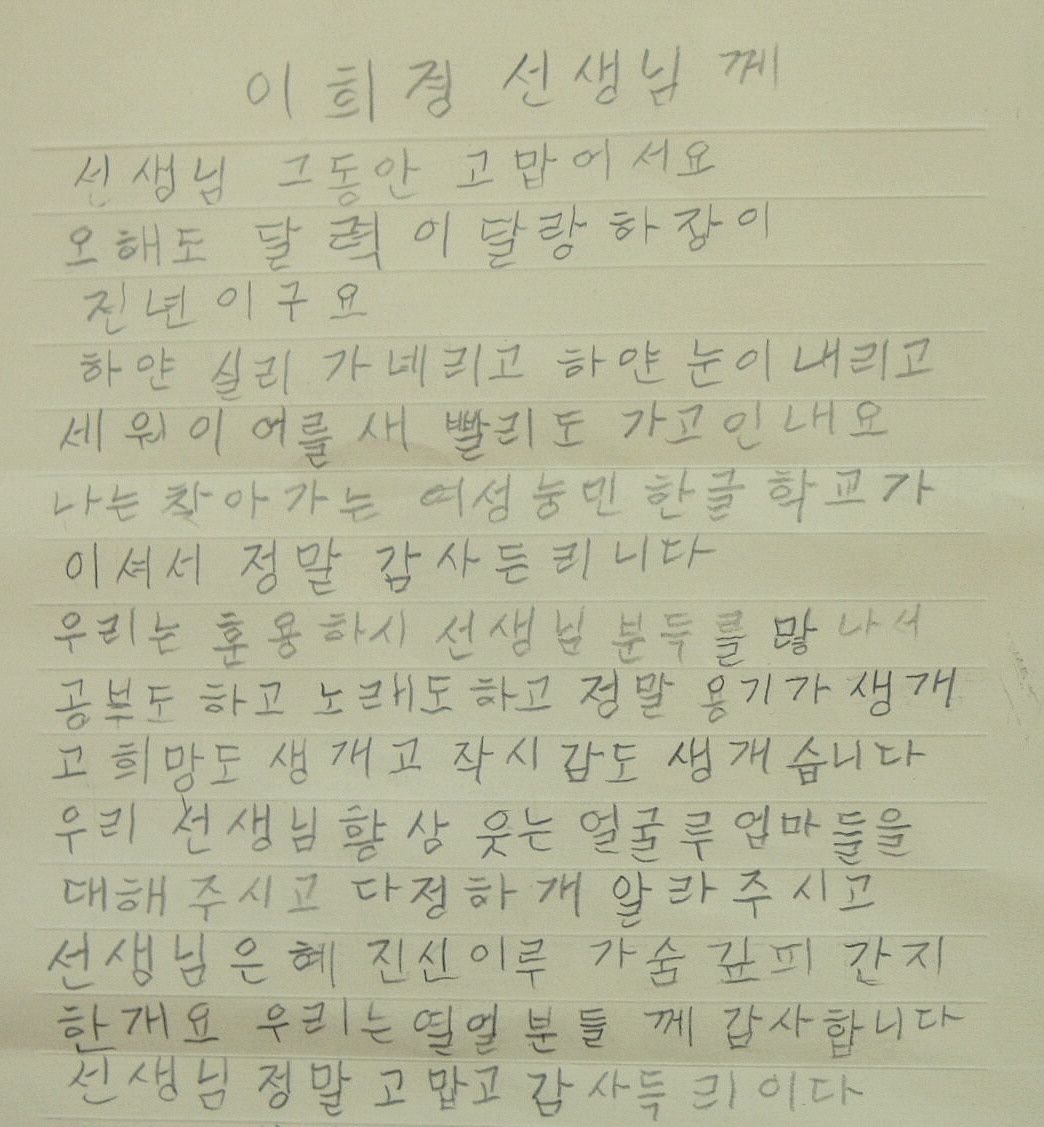 이희정 선생님께
선생님 그동안 고맙어서요
오해도 달력이 달랑 하장이
진년이구요
하얀 실리 가네리고 하얀 눈이 내리고
세워이 여를새 빨리도 가고인내요
나는 찾아가는 여성능민 한글 학교가
이셔서 정말 감사든리니다
우리는 훈용하시 선생님 분득를 많나서
공부도 하고 노래도하고 정말 용기가 생개
고 희망도 생개고 작시감도 생개습니다
우리 선생님 항상 웃는 얼굴루 엄마들을
대해 주시고 다정하개 알라주시고
선생님 은혜 진신이루 가숨 깊피 간지
한개요 우리는 열얼분들께 감사합니다
선생님 정말 고맙고 감사득리이다